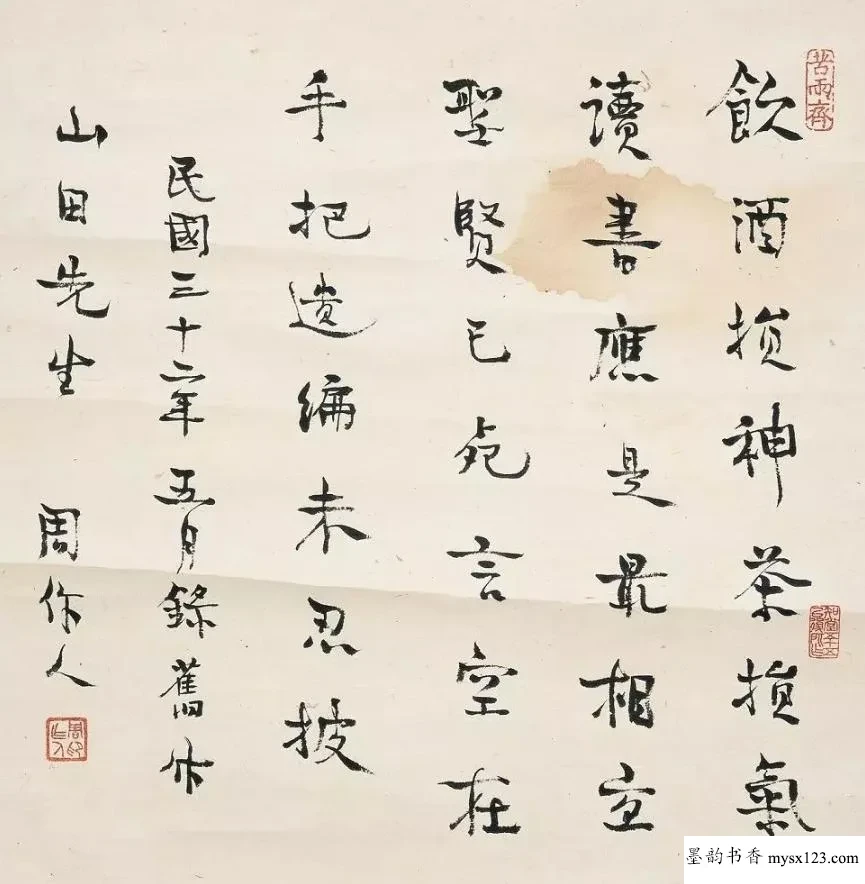 飲酒損神茶損氣
讀書應是最相宜
聖賢已死言空在
手把遺編未忍披
民國三十二年五月錄舊作
山田先生 周作人
苦雨齋
周作人
墨韵书香 mysx123.com